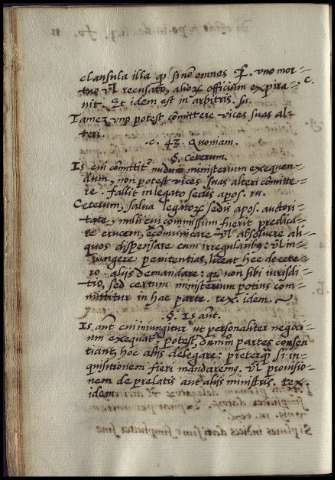 clausula illa q̃ si nõ omnes &c. uno mor-
tuo ul̃ recusato, alioȝ officium expira-
nit. Et idem est in arbitris. si.
Tamez uno potest committere vices suas al-
teri.
c. 43. Quoniam.
§. Ceterum.
Is cui cõmittit nudum ministerium exequen-
dum, non potest vices suas alteri cõmitte-
re. fallit in legato sedis apos. in.
Ceterum, salua legatoȝ sedis apos. auctori-
tate, nulli cui commissum fuerit predica-
re crucem, excomunicare ul̃ absoluere ali-
quos dispensare cum irregularibꝰ: ul̃ in-
iungere penitentias, liceat hec decete-
ro alijs demandare: q̃ non sibi iurisdi-
tio, sed certum ministerium potius com-
mittitur in hac parte. tex. idem.
§. Is aut.
Is aut cui iniungitur ut personaliter negoci-
um exequatur potest, dum in partes consen-
tiant, hoc alijs delegare: preterq̃ si in-
quisitionem fieri mandaremꝰ. ul̃ prouisio-
nem de prelatis aut alijs ministris. tex.
idem.